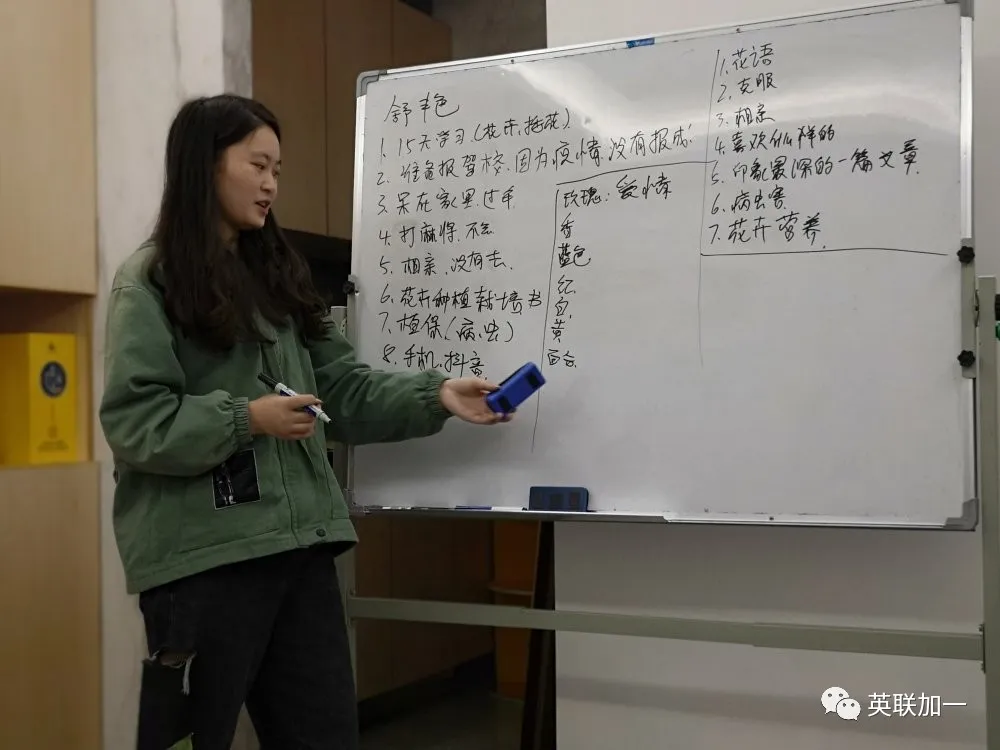 舒丰色
1. 15天学习(花卉、插花)
2. 准备报驾校、因为疫情、没有报成.
3. 呆在家里过年
4. 打麻将、不会
5. 相亲、没有去、
6. 花卉种植栽培书
7、植保(病、虫)
8、手机、抖音
玫瑰:爱情
香
蓝色
红
白
黄
百合
1. 花语
2. 克服
3. 相亲
4. 喜欢什么样的
5. 印象最深的一篇文章
6. 病虫害
7. 花卉营养
英联加一